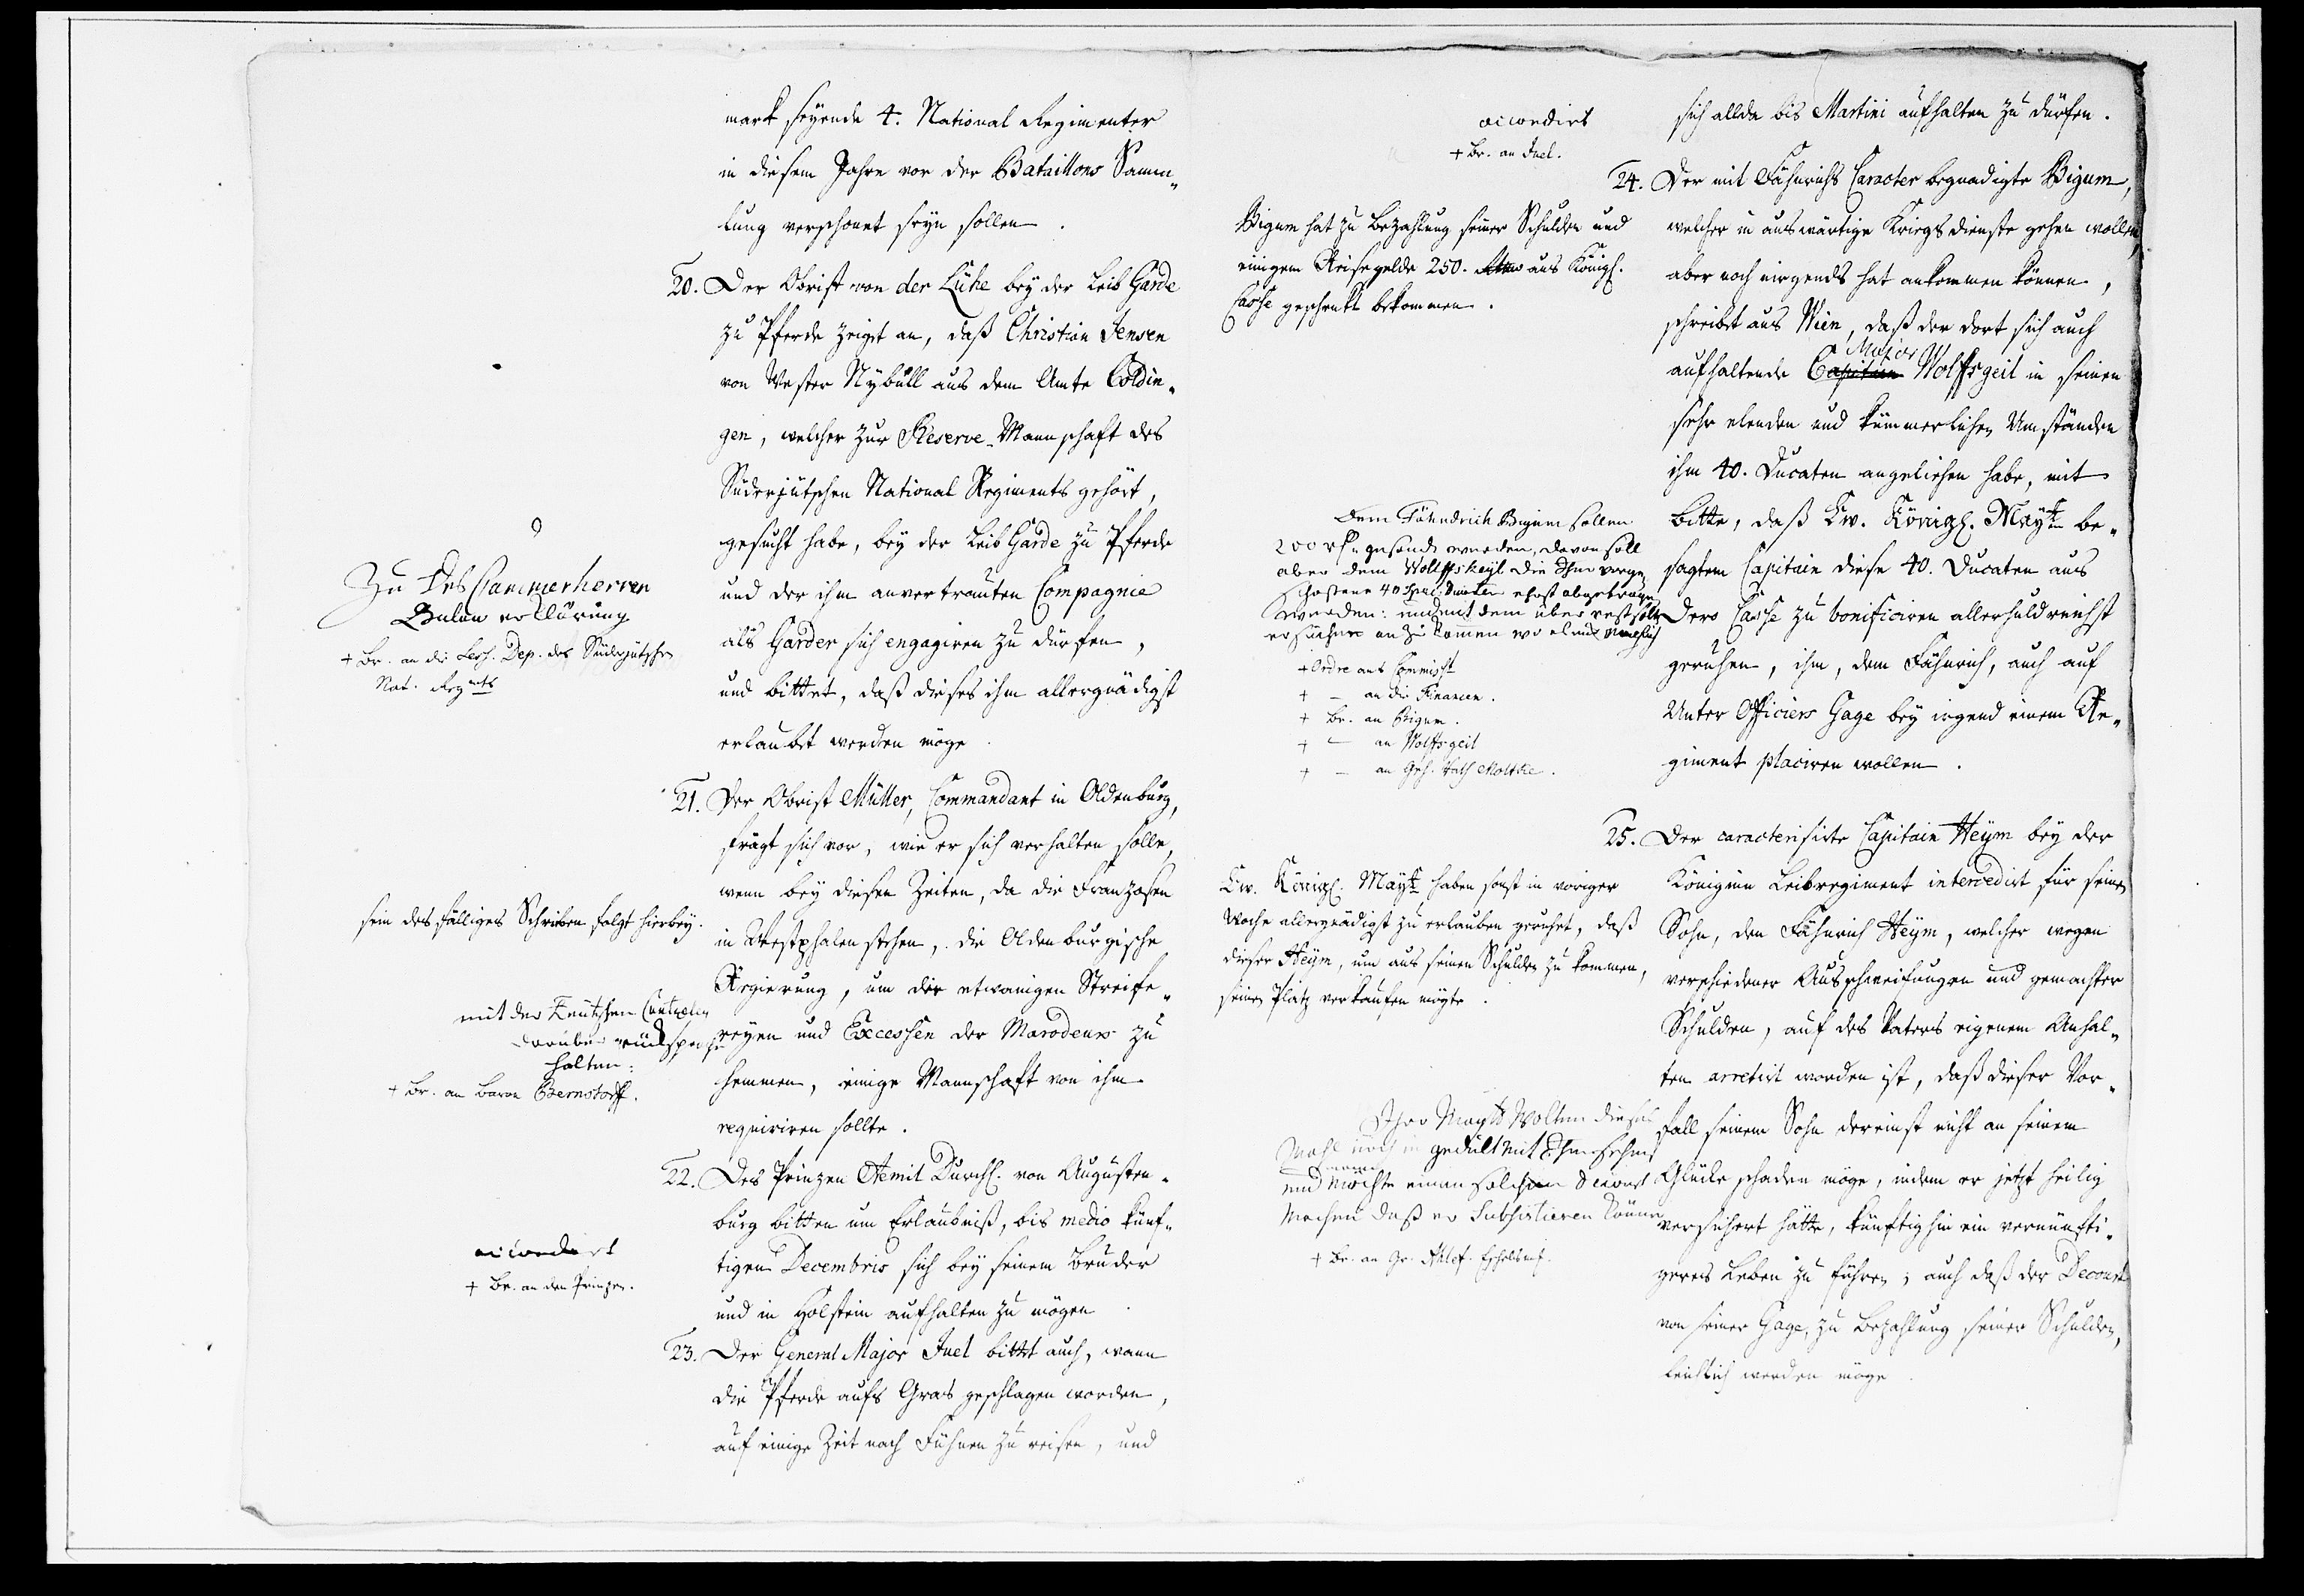 mark seyende 4. National Regimenter
in diesem Jahre vor der Bataillons Samm„
lung verschonet seyn sollen.
20. Der Obrist von der Lühe bey der Leib Garde
zu Pferde zeiget an, daß Christian Jensen
von Vester Nybüll aus dem Amte Coldin„
gen, welcher zur Reserve-Mannschaft des
Süderjütschen National Regiments gehört,
gesucht habe, bey der Leib Garde zu Pferde
und der ihm anvertrauten Compagnie
als Garder sich engagiren zu dürfen,
und bittet, daß dieses ihm allergnädigst
erlaubet werden möge.
Zu Des Cammerherren
Bulow erklärung
+ Br. an die Sess. Dep. des Süderjütschen
Nat. Regmts
21. Der Obrist Müller, Commandant in Oldenburg,
frägt sich vor, wie er sich verhalten solle,
wenn bey diesen Zeiten, da die Franzosen
in Westphalen stehen, die Oldenburgische
Regierung, um die etwanigen Streife„
reyen und Excessen der Marodeurs zu
hemmen, einige Mannschaft von ihm
requiriren sollte.
sein desfälliges Schreiben folgt hierbey.
mit der Teutschen Cantzeley
darüber rücksprache
halten.
+ Br. an Baron Bernstorff.
22. Des Prinzen Aemil Durchl. von Augusten„
burg bitten um Erlaubniß, bis medio künf„
tigen Decembris sich bey seinem Bruder
und in Holstein aufhalten zu mögen.
accordert
+ Br. an den Prinzen.
23. Der General Major Juel bittet auch, wann
die Pferde aufs Gras geschlagen worden,
auf einige Zeit nach Fühnen zu reisen, und
sich allda bis Martini aufhalten zu dürfen.
accordirt
+ Br. an Juel.
24. Der mit Fähnrichs Caracter begnadigte Bigum,
welcher in auswärtige Kriegsdienste gehen wollen,
aber noch nirgends hat ankommen können,
schreibet aus Wien, daß der dort sich auch
Major
aufhaltende Capitain Wolffsgeil in seinen
sehr elenden und kümmerlichen Umständen
ihm 40. Ducaten angeliehen habe, mit
bitte, daß Ew. Königl. Maytt be„
sagtem Capitain diese 40. Ducaten aus
Dero Casse zu bonificiren allerhuldreichst
geruhen, ihm, dem Fähnrich, auch auf
Unter Officiers Gage bey irgend einem Re„
giment placiren wollen.
Bigum hat zu Bezahlung seiner Schulden und
einigem Reisegelde 250. aus Königl.
Casse geschenkt bekommen.
Dem Fähndrich Bigum sollen
200 rh gesandt werden, davon soll
aber dem Wolffskeyl die Ihm vorge„
schossene 40 Spec. Ducaten erst abgetragen
werden: und mit dem überrest solte
er suchen an zu komen wo es müglich
+ Ordre ans Commisst
+ – an die Finanzen.
+ Br. an Bigum.
+ – an Wolffsgeil
+ – an Geh. Rath Moltke.
25. Der caracterisirte Capitain Heym bey der
Königinn Leibregiment intercedirt für seinen
Sohn, den Fähnrich Heym, welcher wegen
verschiedener Ausschweifungen und gemachter
Schulden, auf des Vaters eigenem Anhal„
ten arretirt worden ist, daß dieser Vor„
fall seinem Sohn dereinst nicht an seinem
Glücke schaden möge, indem er jetzt heilig
versichert hätte, künftighin ein vernünfti„
geres Leben zu führen; auch daß der Decourt
von seiner Gage, zu Bezahlung seiner Schulden,
leidlich werden möge.
Ew. Königl. Maytt haben sonst in voriger
Woche allergnädigst zu erlauben geruhet, daß
dieser Heym, um aus seinen Schulden zu kommen,
seinen Platz verkaufen mögte.
Ihro Maytt Wolten dieses
Mahl noch in gedult mit Ihm sehen
und möchte einen solchen Decourt
Machen daß er Subsistieren könne
+ Br. an Gr. Ahlef.